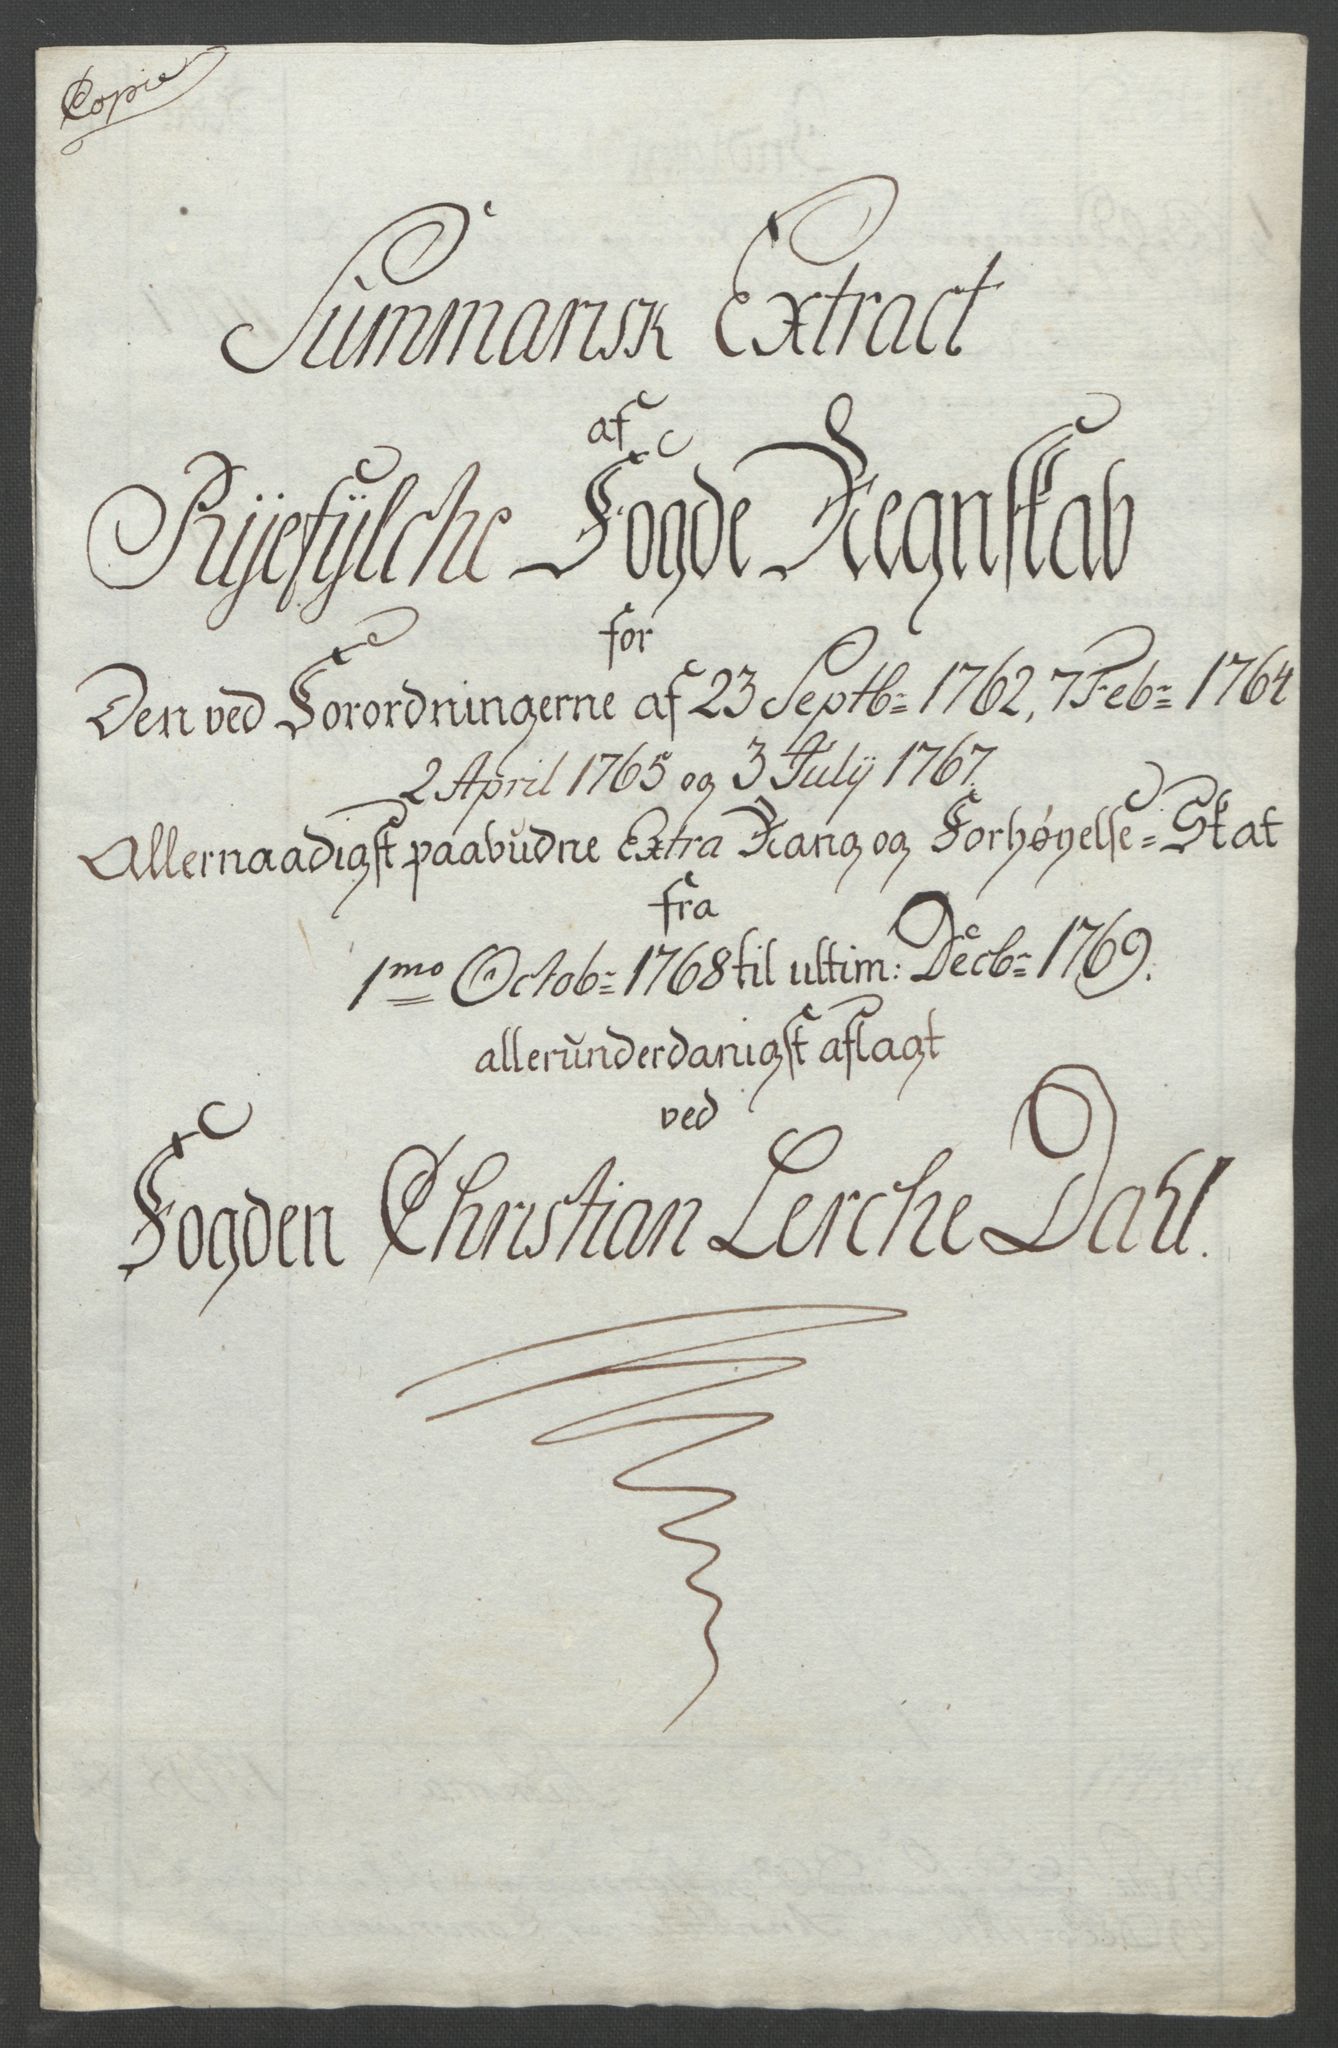 Copie
Summarisk Extract
af
Ryefylche Fogde Regnskab
for
Den ved Forordningerne af 23 Septb: 1762, 7 Feb: 1764
2 April 1765 og 3 Julÿ 1767.
Allernaadigst paabudne Extra Rang og Forhøyelse = Skat
fra
1mo Octob: 1768 til ultim: Decb: 1769.
allerunderdanigst aflagt
ved
Fogden Christian Lerche Dahl.